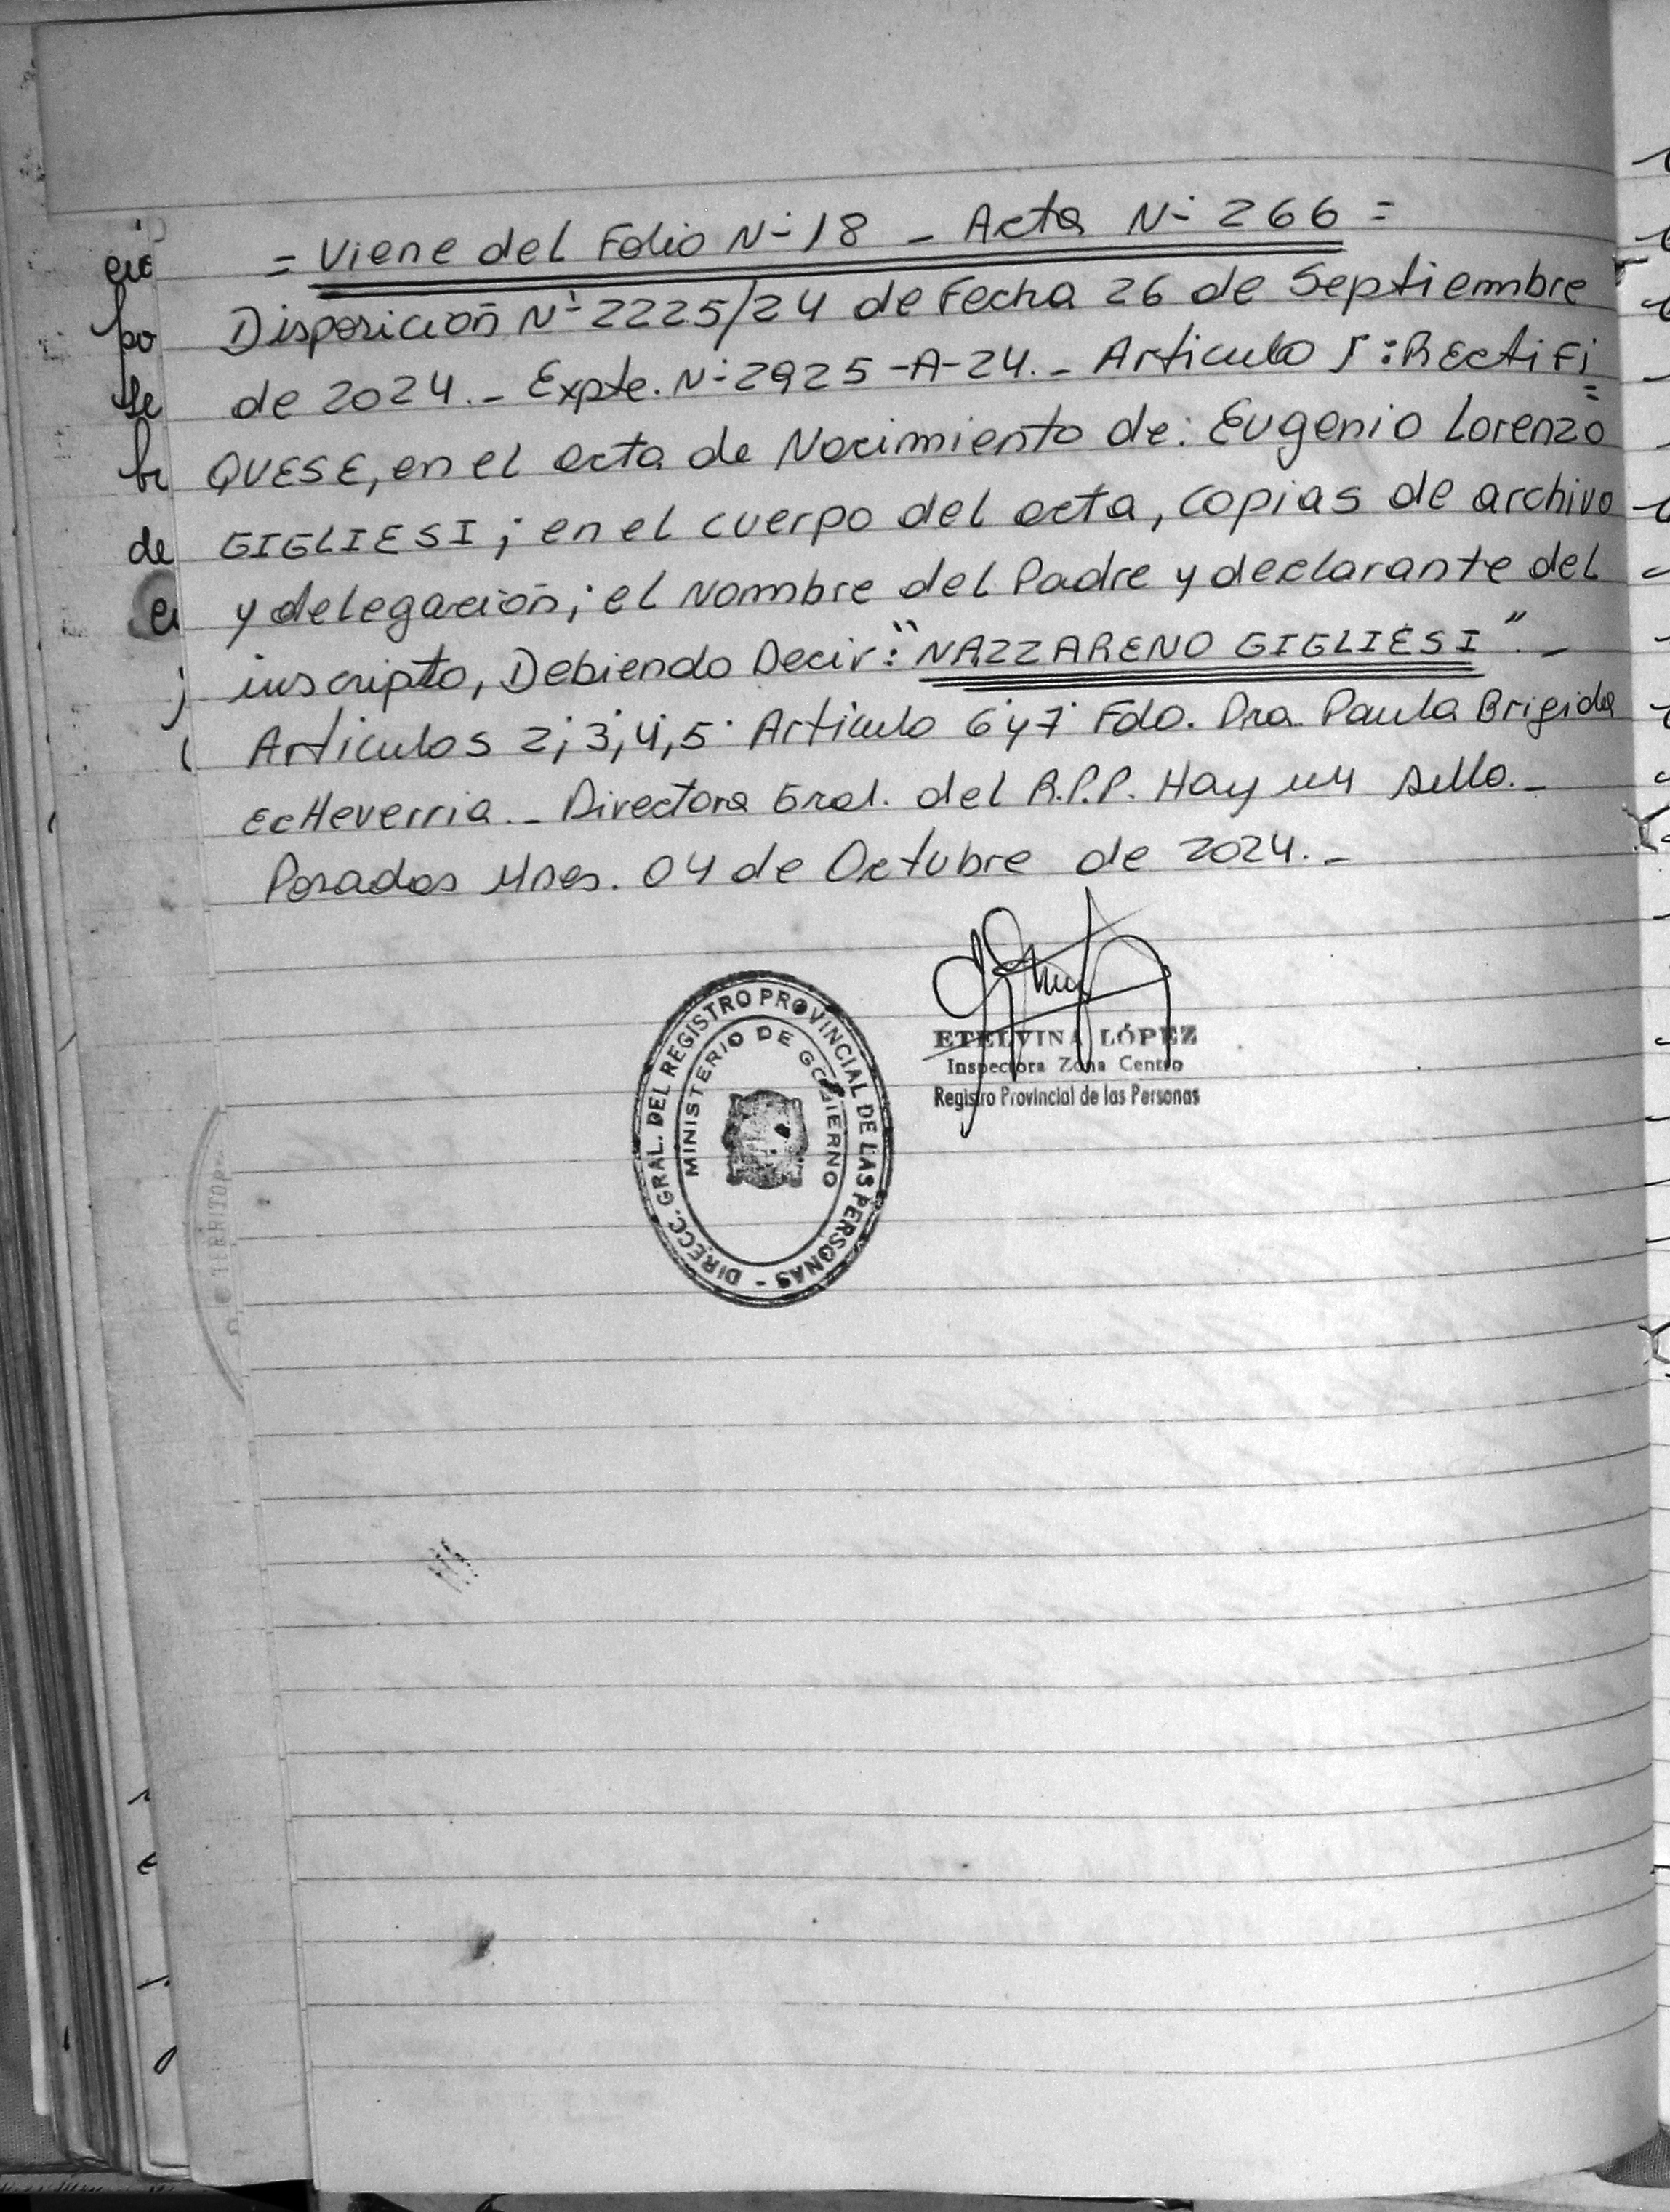 = Viene del Folio N- 18 _ Acta N- 266 =
Disposición N- 2225/24 de Fecha 26 de Septiembre
de 2024._ Expte. N- 2925-A-24._ Articulo 1: RECtiFi
QUESE, en el acta de Nacimiento de: Eugenio Lorenzo
GIGLIESI; en el cuerpo del acta, copias de archivo
y delegación; el Nombre del Padre y declarante del
inscripto, Debiendo Decir: "NAZZARENO GIGLIESI"._
Articulos 2; 3; 4; 5 Articulo 6 y 7 Fdo. Dra. Paula Brigida
EcHeverria._ Directora Gral. del R.P.P. Hay un sello._
Posadas Mnes. 04 de Octubre de 2024._
ETELVINA LÓPEZ
Inspectora Zona Centro
Registro Provincial de las Personas
DIRECC. GRAL. DEL REGISTRO PROVINCIAL DE LAS PERSONAS -
MINISTERIO DE GOBIERNO
po
se
de